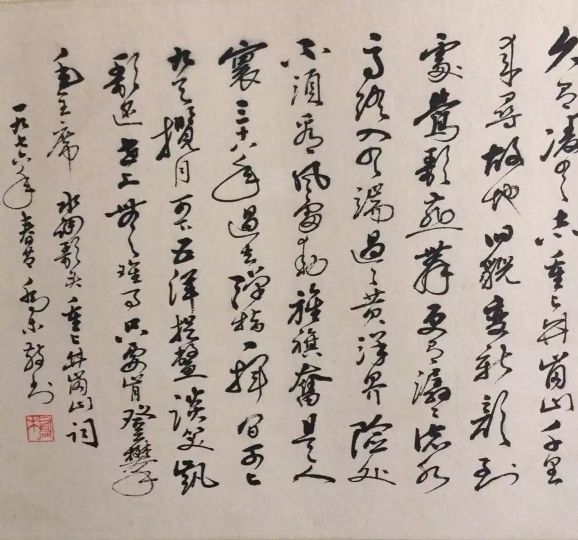 久有凌云志重上井崗山千里
来尋故地旧貌变新颜到
處鶯歌燕舞更有潺潺流水
高路入云端過了黄洋界險处
不須看風雷動旌旗奮是人
寰三十八年過去彈指一揮间可上
九天攬月可下五洋捉鳖談笑凱
歌还世上無難事只要肯登攀
毛主席 水调歌头重上井崗山詞
一九七六年春节 敬书